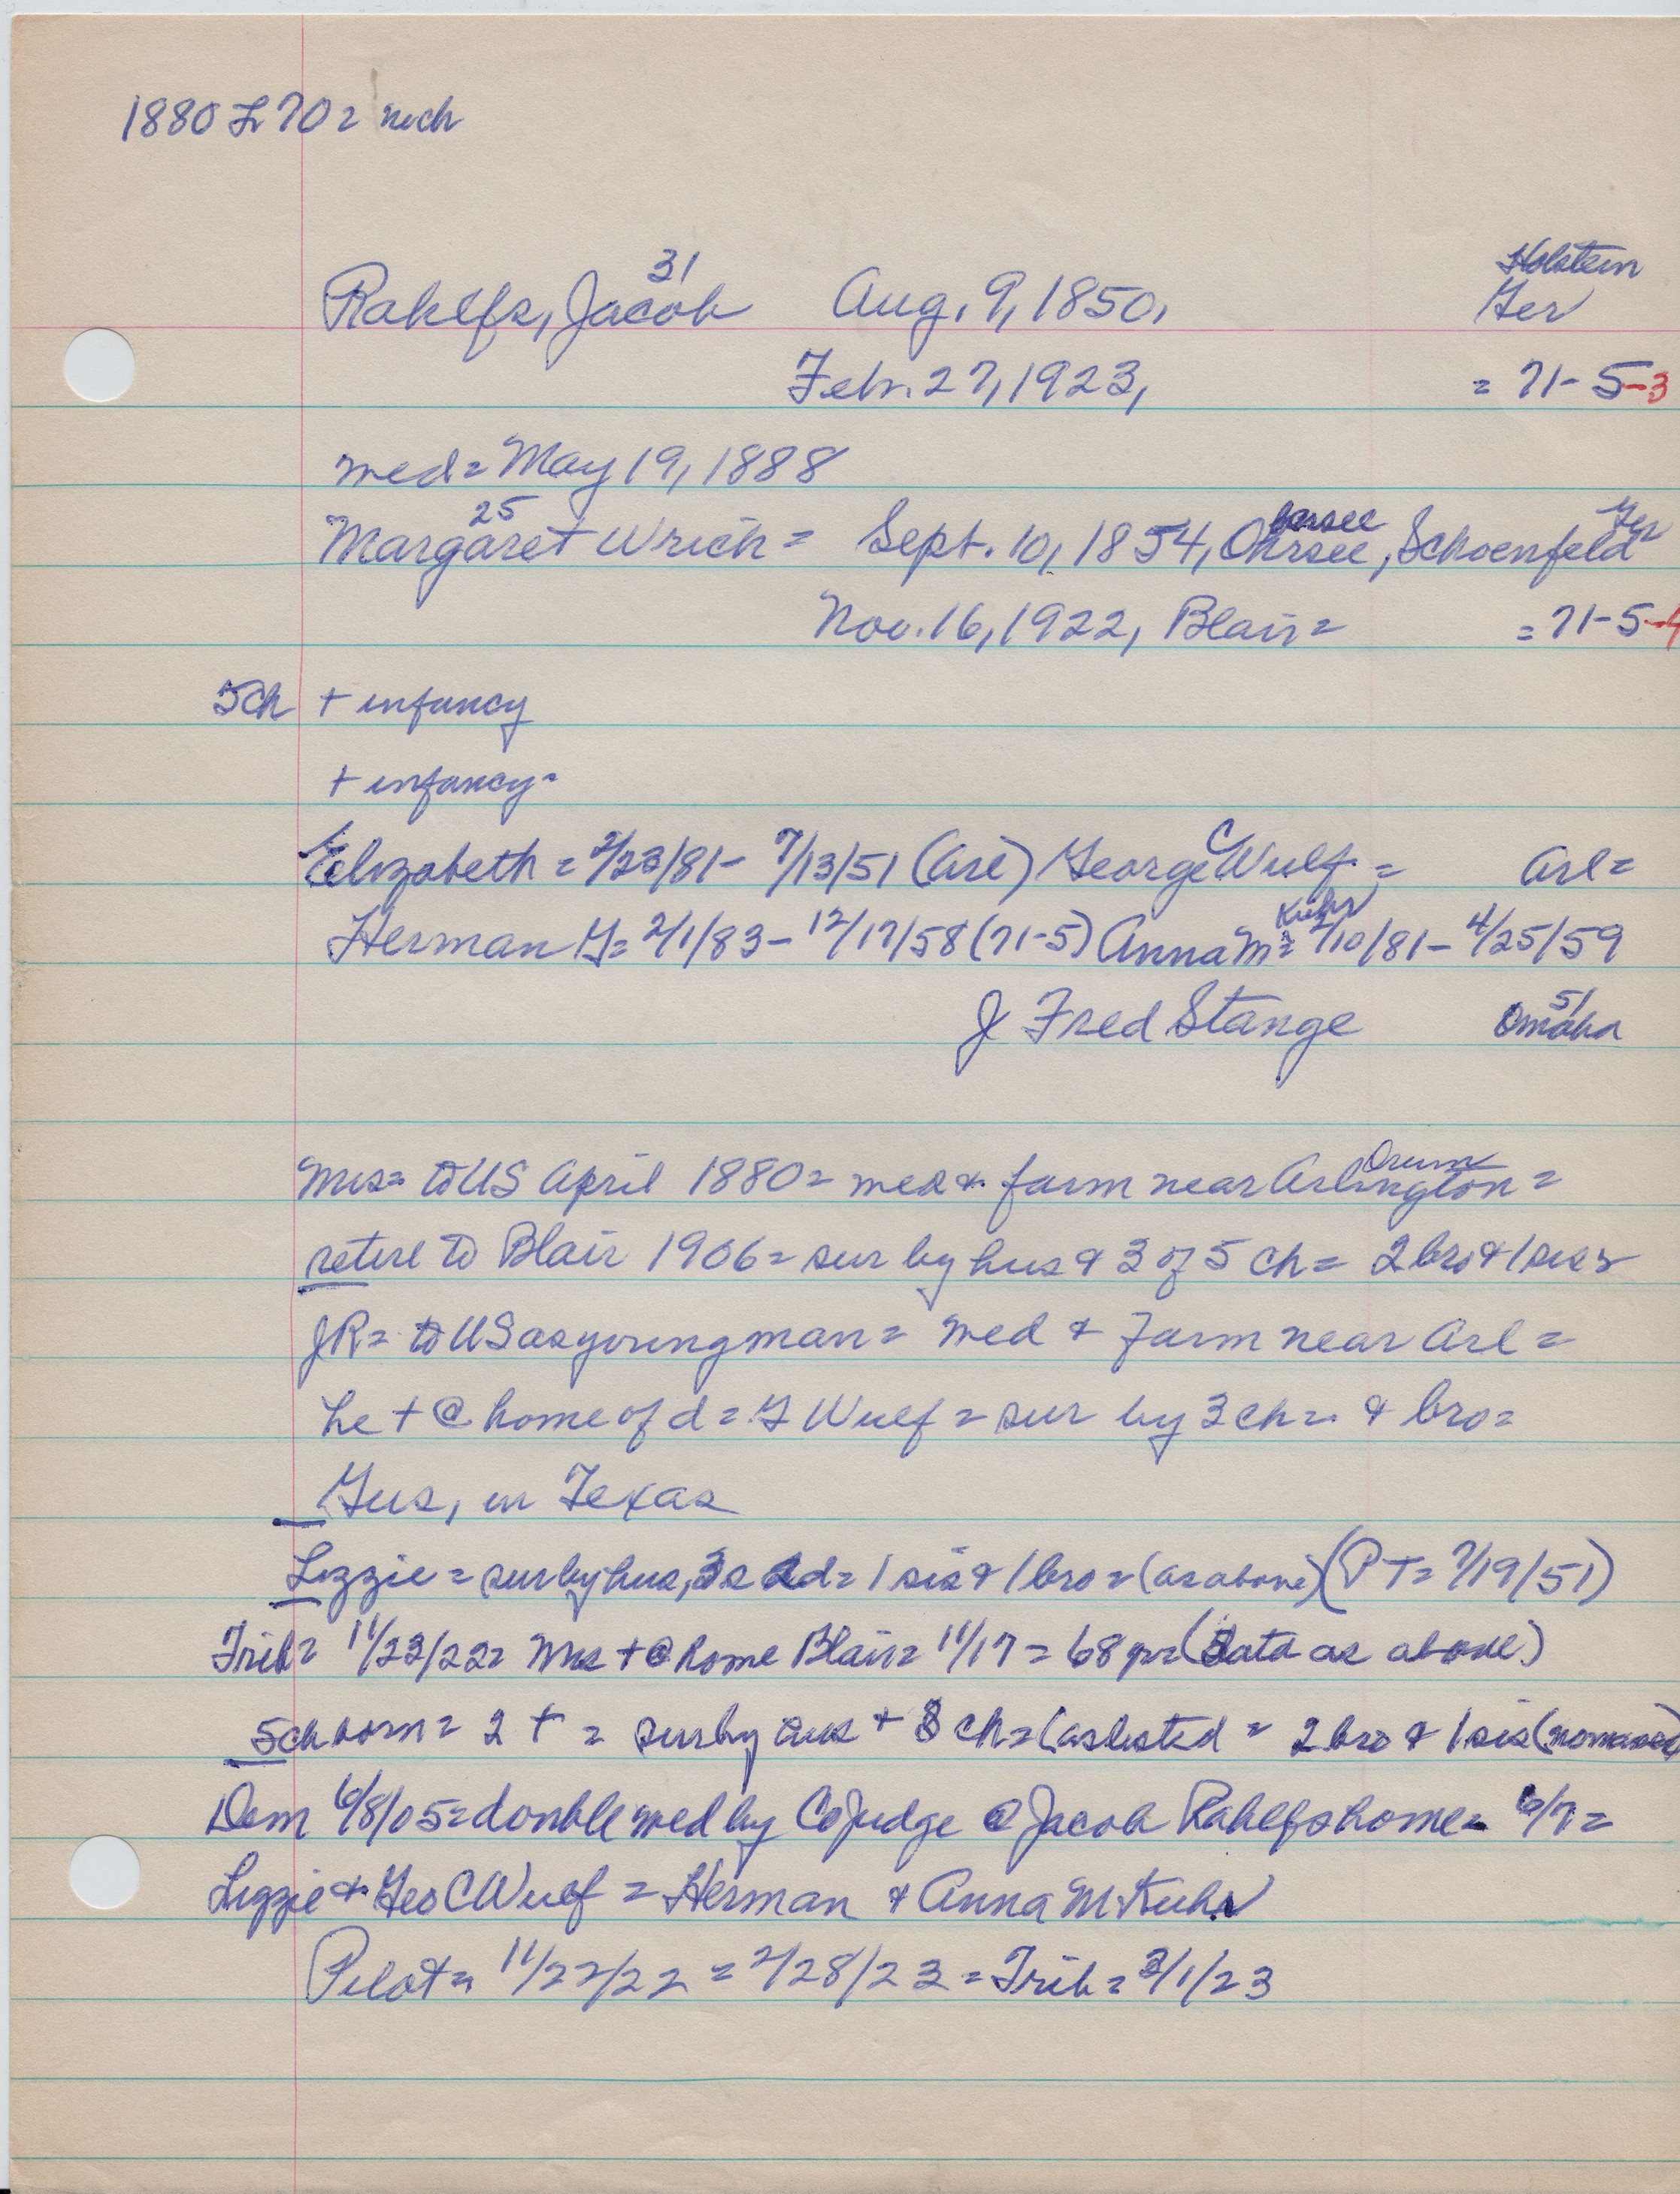 1880 L 70 = no ch
Rahlfs, Jacob 31 Aug. 9, 1850, Holstein Ger
Febr. 27, 1923, = 71-5-3
wed = May 19, 1888
Margaret 25 Wrich = Sept. 10, 1854, Ohrsee, Schoenfeld Ger
Nov. 16, 1922, Blair = = 71-5-4
5 ch + infancy
+ infancy =
Elizabeth = 2/23/81 - 7/13/51 (Arl) George C Wulf = Arl =
Herman G = 2/1/83 - 12/17/58 (71-5) Anna M Kuhr = 2/10/81 - 4/25/59
J Fred Stange 51 Omaha
Mrs = to US April 1880 = wed & farm near Arlington Orum =
retire to Blair 1906 = sur by hus & 3 of 5 ch = 2 bro & 1 sis =
JR = to US as young man = wed & farm near Arl =
he + @ home of d = G Wulf = sur by 3 ch = & bro =
Gus, in Texas
Lizzie = sur by hus, 3s 2d = 1 sis & 1 bro = (as above) (PT = 7/19/51)
Trib = 11/23/22 = Mrs + @ home Blair = 11/17 = 68 yr = (Data as above)
5 ch born = 2 + = sur by hus + 3 ch = (as listed = 2 bro & 1 sis (no names)
Dem 6/8/05 = double wed by Co Judge @ Jacob Rahlfs home = 6/7 =
Lizzie & Geo C Wulf = Herman & Anna M Kuhr
Pilot = 11/22/22 = 2/28/23 = Trib = 3/1/23